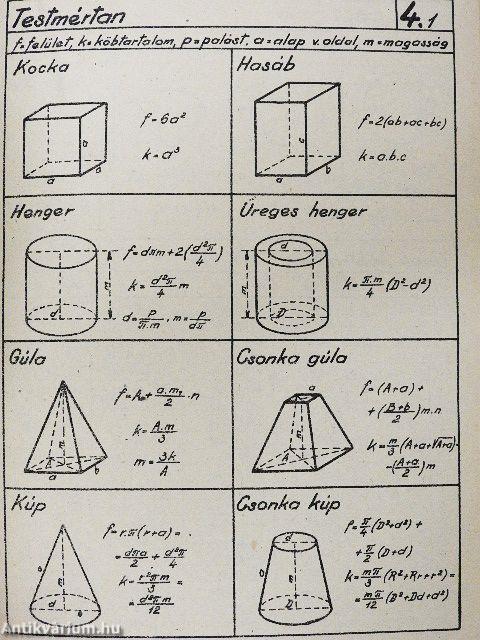 Testmértan
4.1
f=felület, k=köbtartalom, p=palást, a=alap v. oldal, m=magasság
Kocka
f=6a²
k=a³
a
a
a
Hasáb
f=2(ab+ac+bc)
k=a.b.c
c
a
b
Henger
f=dπm+2(d²π/4)
k=d²π/4 m
d=p/π.m, m=p/dπ
m
d
Üreges henger
k=π.m/4 (D²-d²)
d
m
D
Gúla
f=A+a.m₁/2 .n
k=A.m/3
m=3k/A
m
A
a
b
Csonka gúla
f=(A+a)+
+(B+b/2)m.n
k=m/3(A+a+√A+a)-
-(A+a/2)m
a
m
A
Kúp
f=r.π(r+a)=
=dπa/2+d²π/4
k=r²πm/3=
=d²πm/12
a
m
d
Csonka kúp
f=π/4(D²+d²)+
+π/2(D+d)
k=mπ/3(R²+Rr+r²)=
=mπ/12(D²+Dd+d²)
d
m
D
Antikvárium.hu